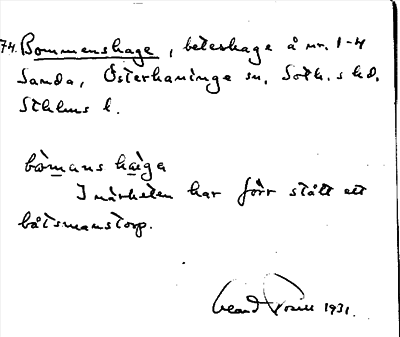 74. Bommenshage, beteshage å nr. 1-4
Sanda, Österhaninge sn, Soth. s hd.
Sthlms l.
bòmans hàga
I närheten har förr stått ett
båtsmanstorp.
1931.